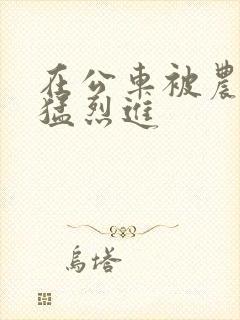 在公車被農
猛烈進
烏塔